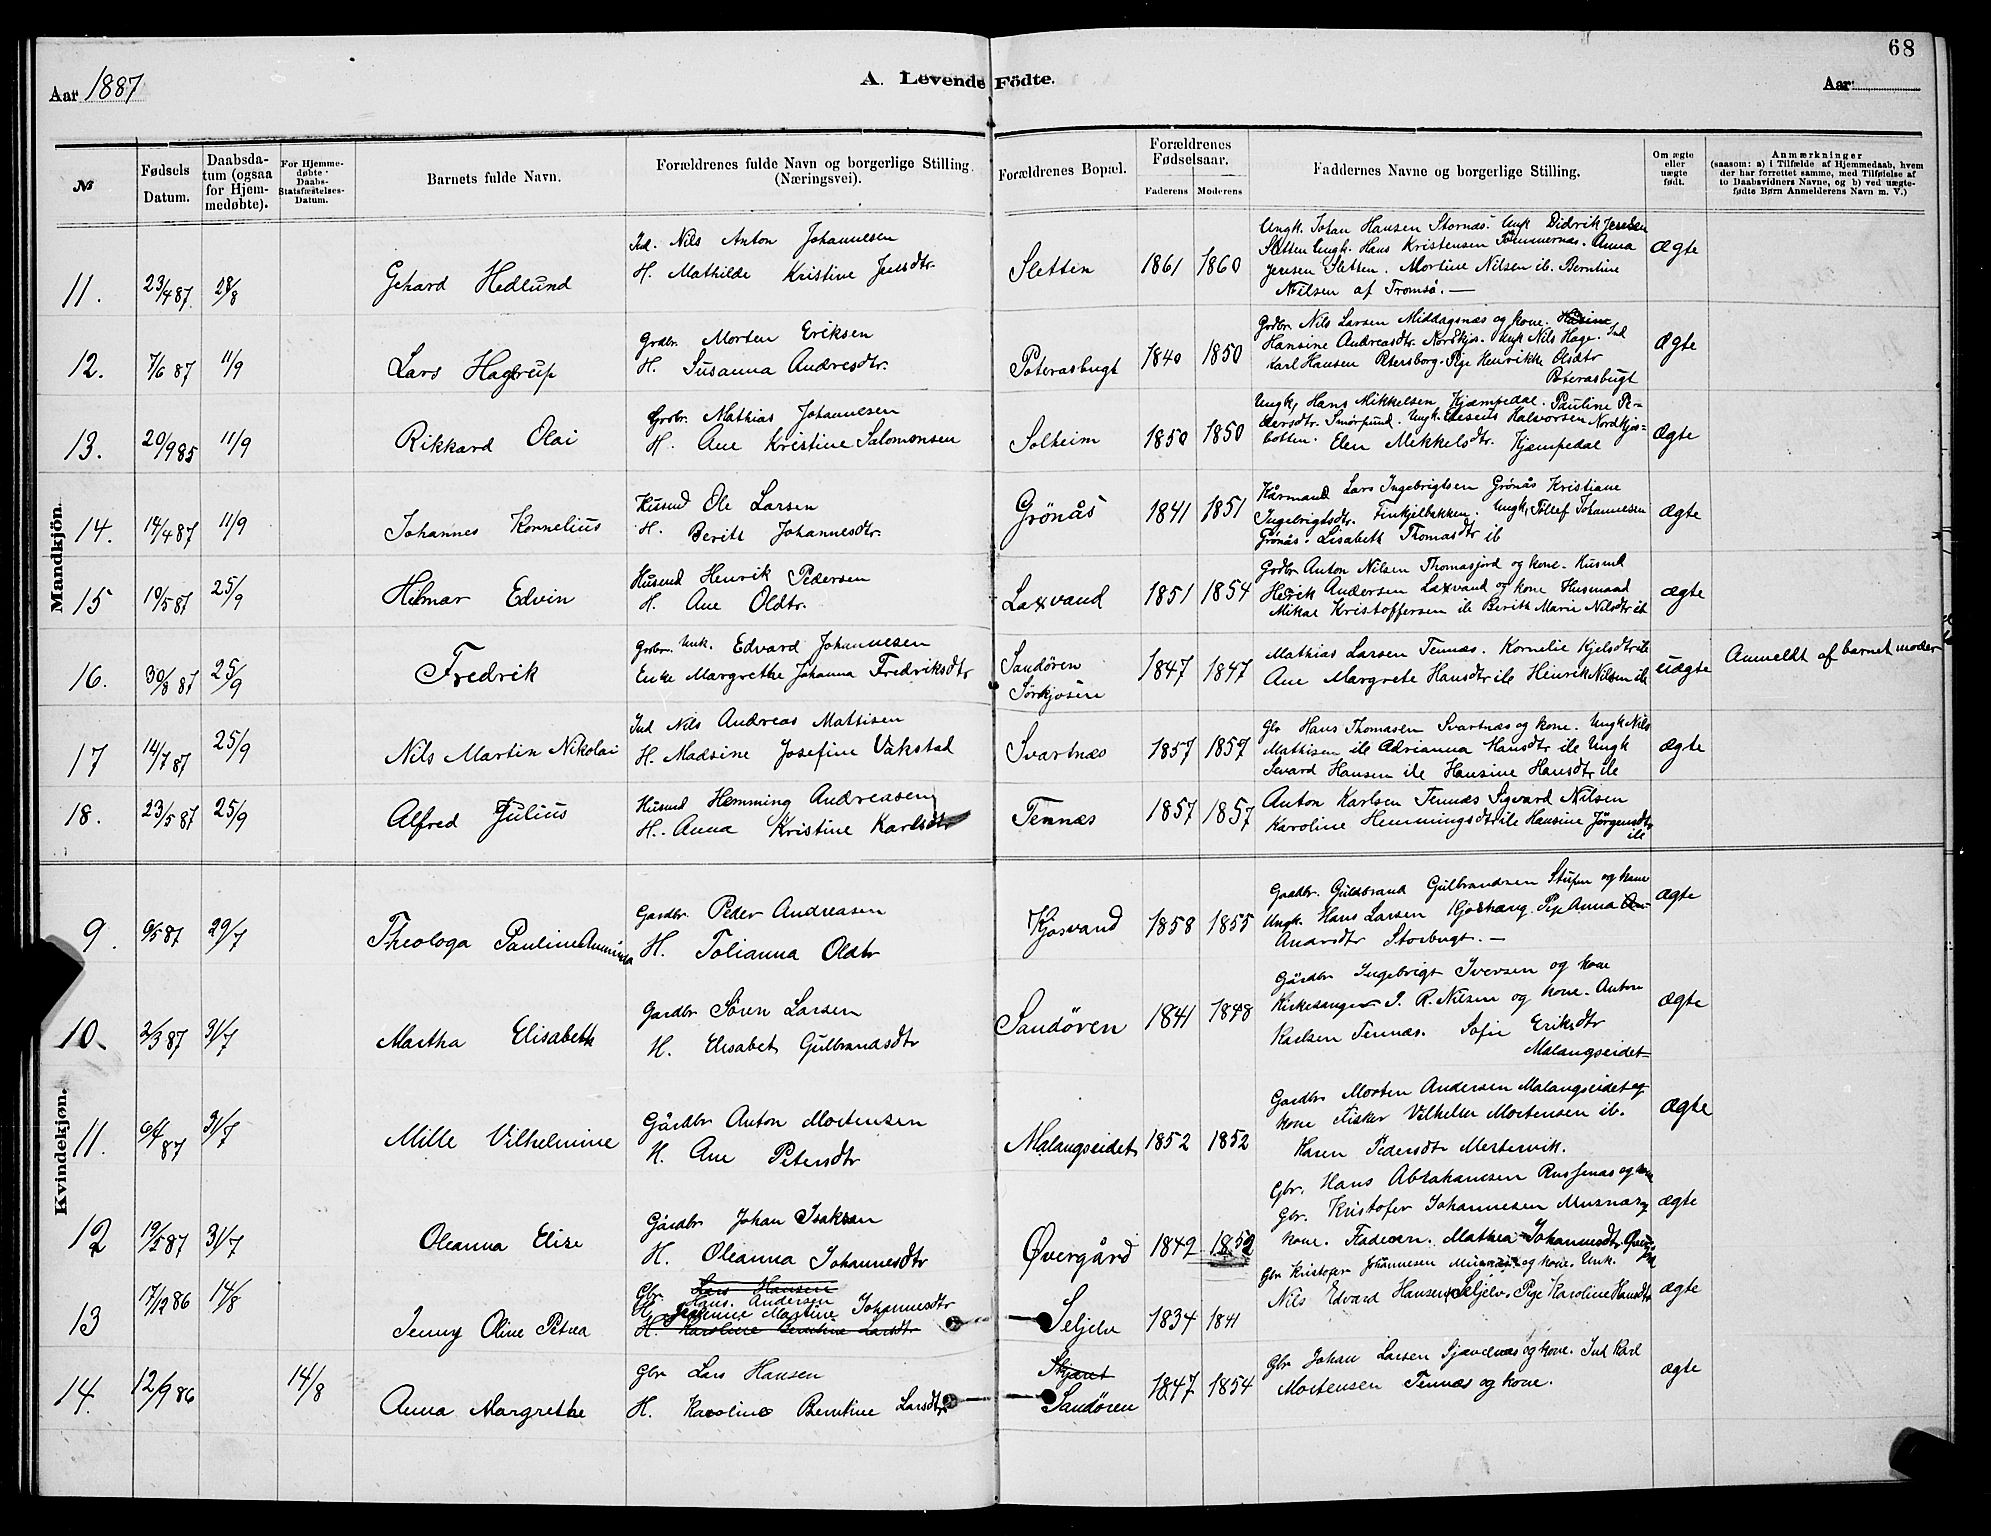 68
Aar 1887
A. Levende Födte.
Aar
№
Fødsels Datum.
Daabsda-tum (ogsaa for Hjem-medøbte).
For Hjemme-døbte Daabs-Statsfæstelses-Datum.
Barnets fulde Navn.
Forældrenes fulde Navn og borgerlige Stilling. (Næringsvei).
Forældrenes Bopæl.
Forældrenes Fødselsaar.
Faderens
Moderens
Faddernes Navne og borgerlige Stilling.
Om ægte eller uægte født.
Anmærkninger
(saasom: a) i Tilfælde af Hjemmedaab, hvem
der har forrettet samme, med Tilføielse af
to Daabsvidners Navne, og b) ved uægte-
fødte Børn Anmelderens Navn m. V.)
Mandkjön.
11. 23/4 87. 28/8 Gehard Hedlund
Ind. Nils Anton Johannesen
H. Mathilde Kristine Jensdtr.
Sletten 1861 1860
Ungk. Johan Hansen Stornæs. Ungk Didrik Jensen
Sletten Ungk. Hans Kristensen Tömmernæs. Anna
Jensen Sletten. Mortine Nilsen ib. Berntine
Nilsen af Tromsö. —
Ægte
12. 7/6 87 11/9 Lars Hagerup
Grdbr. Morten Eriksen
H. Susanna Andresdtr.
Poterasbugt 1840 1850
Grdbr. Nils Larsen Middagsnæs og kone.
Hansine Andreasdtr. Nordkjos. Ungk Nils Hage. Ind
Karl Hansen Petersborg. Pige Henrikke Olsdtr
Poterasbugt
Ægte
13. 20/9 85 11/9 Rikkard Olai
Grdbr. Mathias Johannesen
H. Ane Kristine Salomonsen
Solheim 1850 1850
Ungk, Hans Mikkelsen Kjæmpedal. Pauline Pe-
dersdtr. Smörfund. Ungk. Eliseus Halvorsen Nordkjos-
botten. Elen Mikkelsdtr. Kjæmpedal
Ægte
14. 14/4 87 11/9 Johannes Kornelius
Husmd Ole Larsen
H. Berith Johannesdtr.
Grönås 1841 1851
Kårmand Lars Ingebrigtsen Grönås Kristiane
Ingebrigtsdtr. Ungk, Tollef Johannesen
Grönås. Lisabeth Thomasdtr ib
ægte
15 10/5 87 25/9 Hilmar Edvin
Husmd Henrik Pedersen
H. Ane Oldtr.
Laxvand 1851 1854
Grdbr Anton Nilsen Thomasjord og kone. Husmd
Henrik Andersen Laxvand og kone Husmand
Mikal Kristoffersen ib Berith Marie Nilsdtr ib
ægte
16. 30/8 87 25/9 Fredrik
Grdbr. Unk. Edvard Johannesen
Enke Margrethe Johanna Fredriksdtr
Sandören
Sörkjosen
1847 1847
Mathias Larsen Tennæs. Kornelie Kjelsdtr ib
Ane Margrete Hansdtr ib Henrik Nilsen ib
uægte Anmeldt af barnet moder
17 14/7 87 25/9 Nils Martin Nikolai
Ind Nils Andreas Mattisen
H. Madsine Josefine Vakstad
Svartnæs 1857 1857
Gbr Hans Thomasen Svartnæs og kone. Ungk Nils
Mattisen ib Adrianna Hansdtr ib Ungk
Sevard Hansen ib Hansine Hansdtr ib
ægte
18. 23/5 87 25/9 Alfred Julius
Husmd Hemming Andreasen
H. Anna Kristine Karlsdtr
Tennæs 1857 1857
Anton Karlsen Tennæs Sigvard Nilsen
Karoline Hemmingsdtr ib Hansine Jörgensdtr
ib
Kvindekjøn.
9. 6/5 87 29/7 Theologa Pauline Anminda
Gardbr. Peder Andreasen
H. Tolianna Oldtr
Kjosvand 1858 1855
Gaardbr. Guldbrand Gulbrandsen Stupen og kone
Ungk. Hans Larsen Kjoshaug. Pige Anna
Andrsdtr Storbugt. —
ægte
10. 2/3 87 31/7 Martha Elisabeth
Gardbr Sören Larsen
H. Elisabet Gulbrandsdtr
Sandören 1841 1848
Gårdbr Ingebrigt Iversen og kone
Kirkesanger J. R. Nilsen og kone. Anton
Karlsen Tennæs. Sofie Eriksdtr
Malangseidet
ægte
11. 6/4 87 31/7 Mille Vilhelmine
Gårdbr Anton Mortensen
H. Ane Petersdtr
Malangseidet 1852 1852
Gardbr Morten Andersen Malangseidet og
kone Fisker Vilhelm Mortensen ib.
Karen Pedersdtr Mestervik.
ægte
12 19/5 87 31/7 Oleanna Elise
Gårdbr Johan Isaksen
H. Oleanna Johannesdtr
Øvergård 1849 1852
Gbr. Hans Abrahamsen Russenæs og kone
Gbr. Kristofer Johannesen Musnæs og
kone. Faderen. Mathea Johannesdtr. Øvergård
ægte
13 17/12 86 14/8 Jenny Oline Petrea
Gbr. Lars Hansen
Hans. Andersen
H. Martine Johannesdtr
H. Karoline Berntine Larsdtr
Seljelv 1834 1841
Gbr Kristofer Johannesen og kone. Unk.
Nils Edvard Hansen Seljelv. Pige Karoline Hansdtr
ægte
14. 12/9 86 14/8 Anna Margrethe
Gbr Lars Hansen
H. Karoline Berntine Larsdtr
Sandören 1847 1854
Gbr Johan Larsen og kone. Ind Karl
Mortensen Tennæs og kone.
ægte